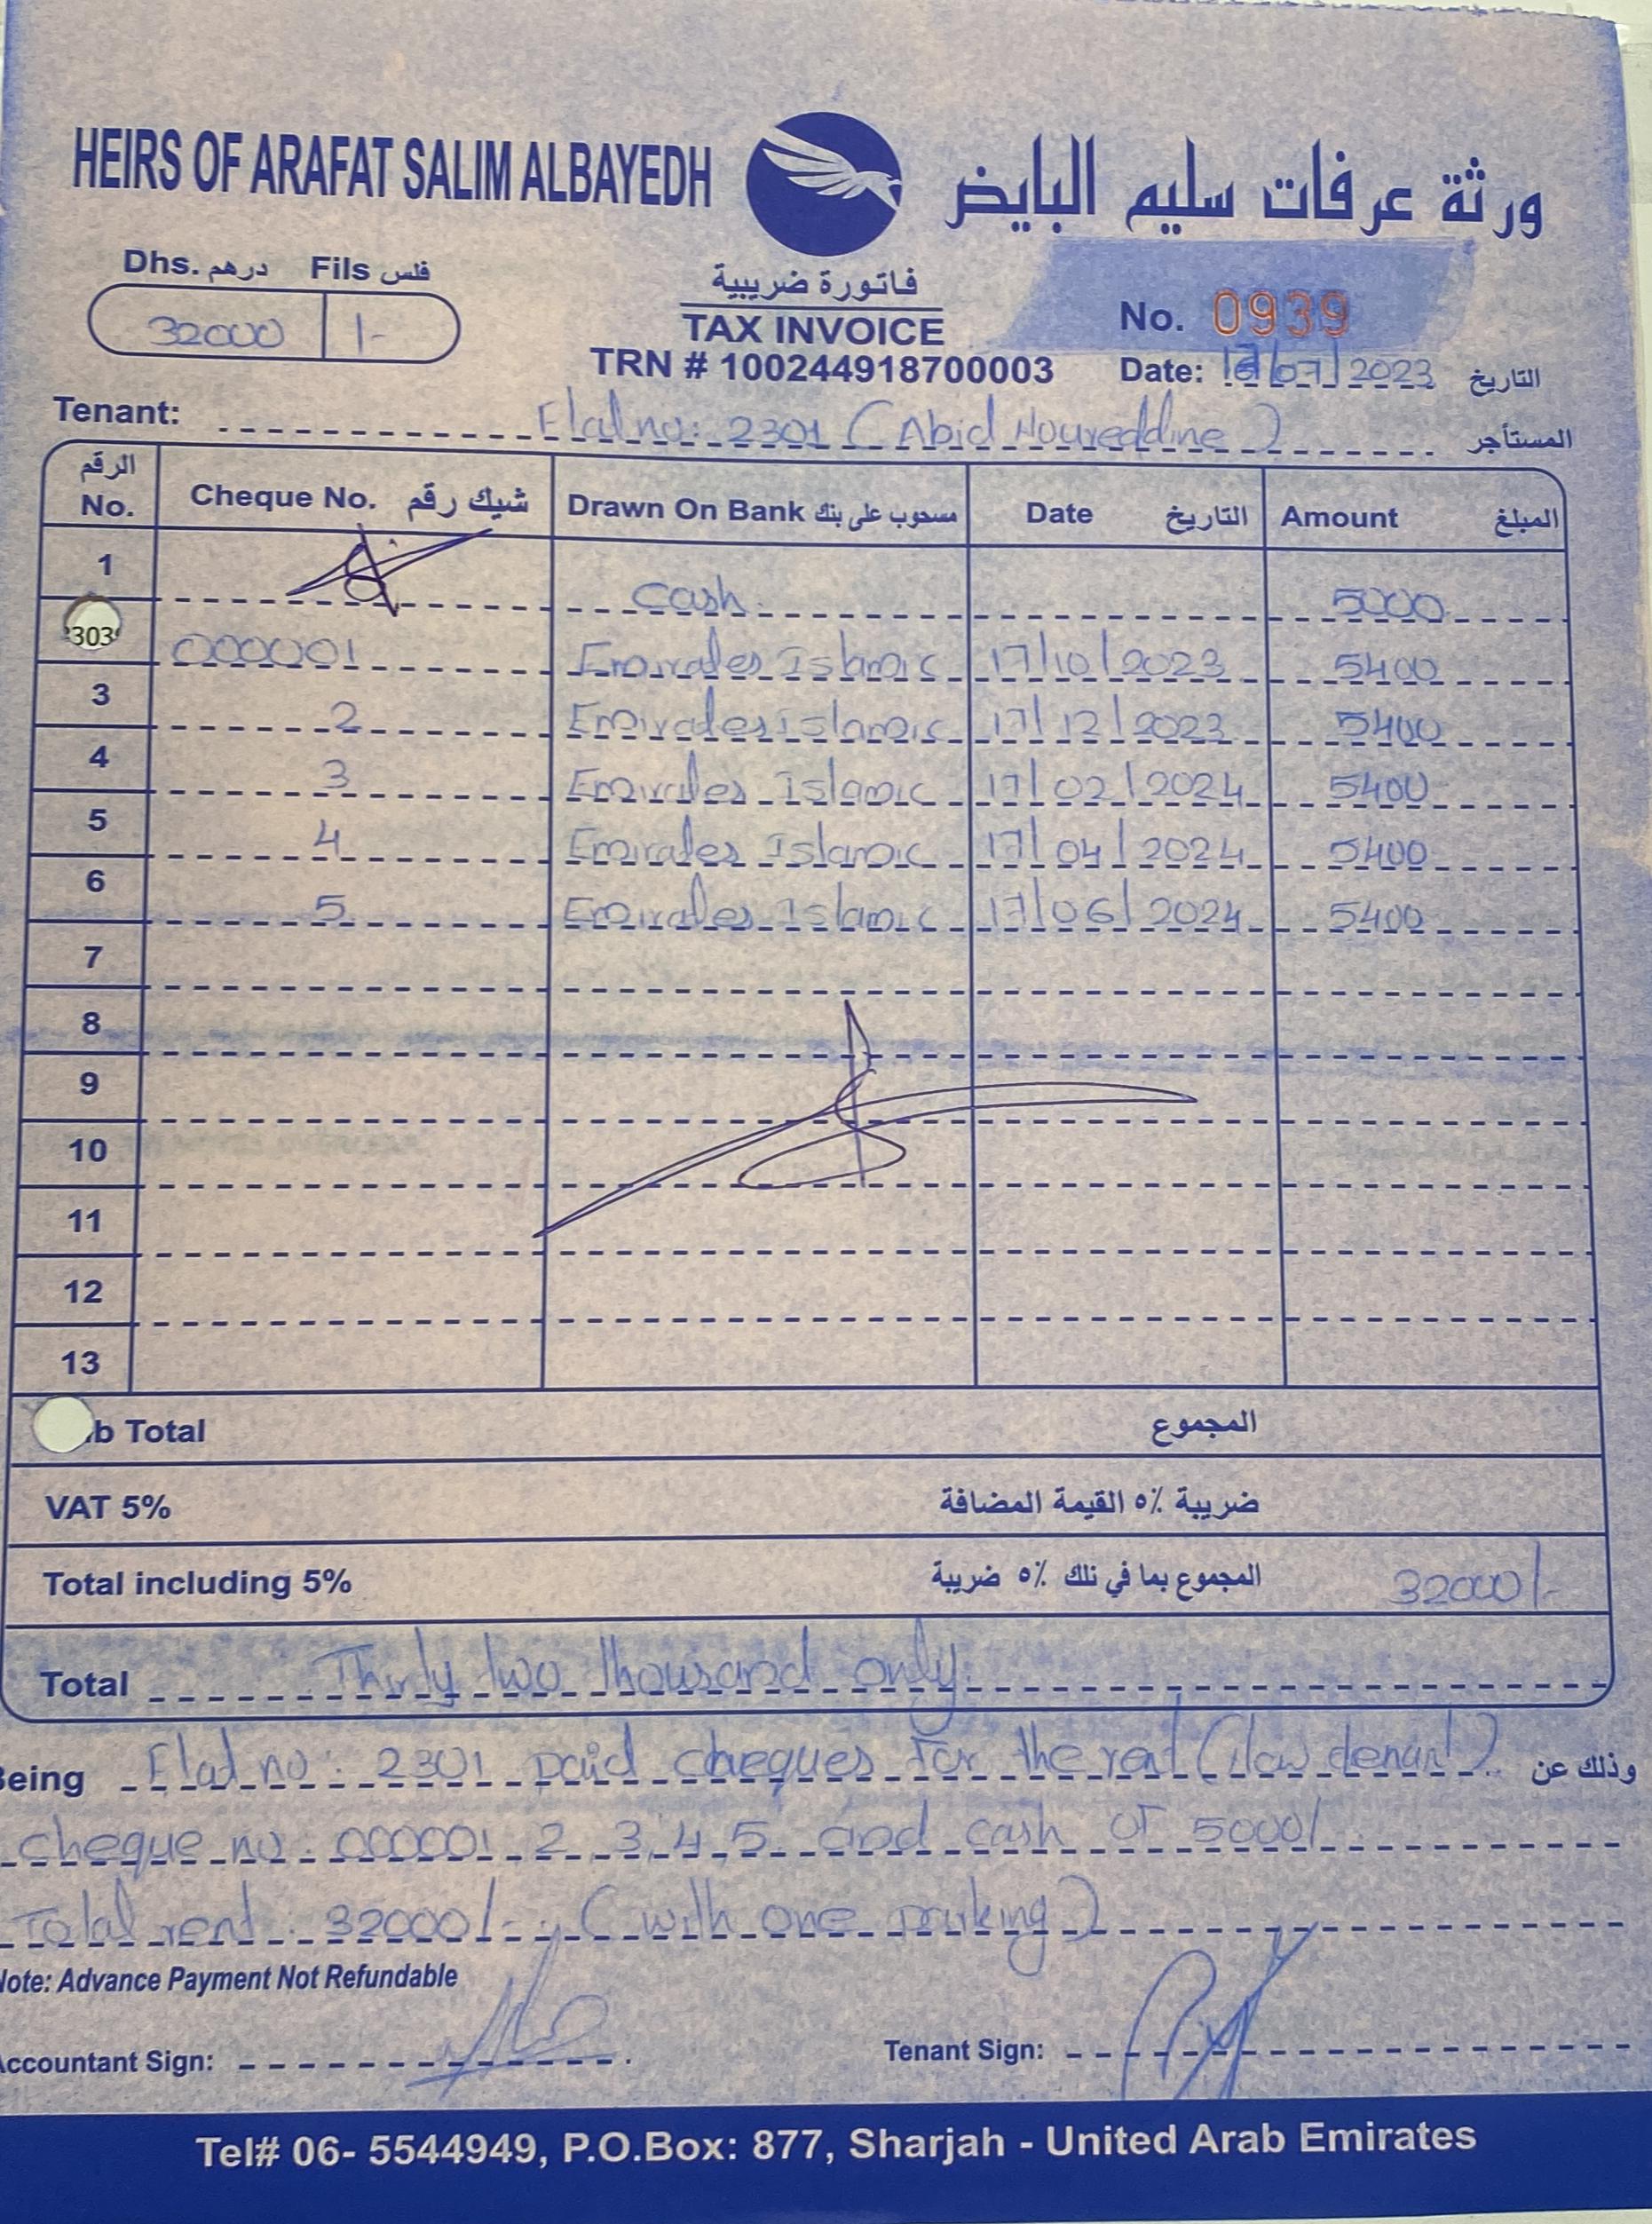 HEIRS OF ARAFAT SALIM ALBAYEDH ورثة عرفات سليم البايض
Dhs. درهم Fils فلس
32000 /-
فاتورة ضريبية
TAX INVOICE
TRN # 100244918700003
No. 0939
Date: /07/2023 التاريخ
Tenant: Flat no: 2301 (Abid Noureddine) المستأجر
الرقم No. Cheque No. شيك رقم Drawn On Bank مسحوب على بنك Date التاريخ Amount المبلغ
1 Cash 5000
303 000001 Emirates Islamic 17/10/2023 5400
3 2 Emirates islamic 17/12/2023 5400
4 3 Emirates Islamic 17/02/2024 5400
5 4 Emirates Islamic 17/04/2024 5400
6 5 Emirates Islamic 17/06/2024 5400
7
8
9
10
11
12
13
b Total المجموع
VAT 5% ضريبة ٥% القيمة المضافة
Total including 5% المجموع بما في ذلك ٥% ضريبة 32000/-
Total Thirty two thousand only.
Being Flat no: 2301 paid cheques for the rent وذلك عن
cheque no: 000001, 2, 3, 4, 5 and cash of 5000/
Total rent: 32000/- (with one parking)
Note: Advance Payment Not Refundable
Accountant Sign: Tenant Sign:
Tel# 06- 5544949, P.O.Box: 877, Sharjah - United Arab Emirates